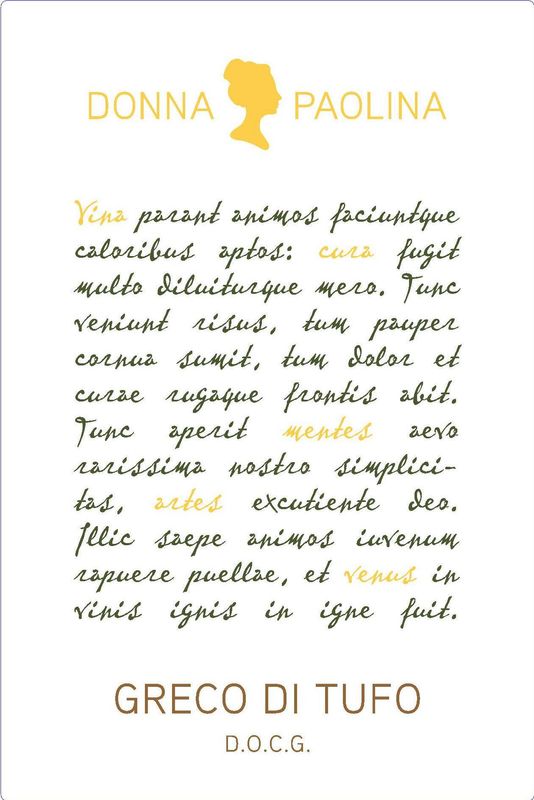 DONNA PAOLINA
Vina parant animos faciuntque
caloribus aptos: cura fugit
multo diluiturque mero. Tunc
veniunt risus, tum pauper
cornua sumit, tum dolor et
curae rugaque frontis abit.
Tunc aperit mentes aevo
rarissima nostro simplici-
tas, artes excutiente deo.
Illic saepe animos iuvenum
rapuere puellae, et venus in
vinis ignis in igne fuit.
GRECO DI TUFO
D.O.C.G.